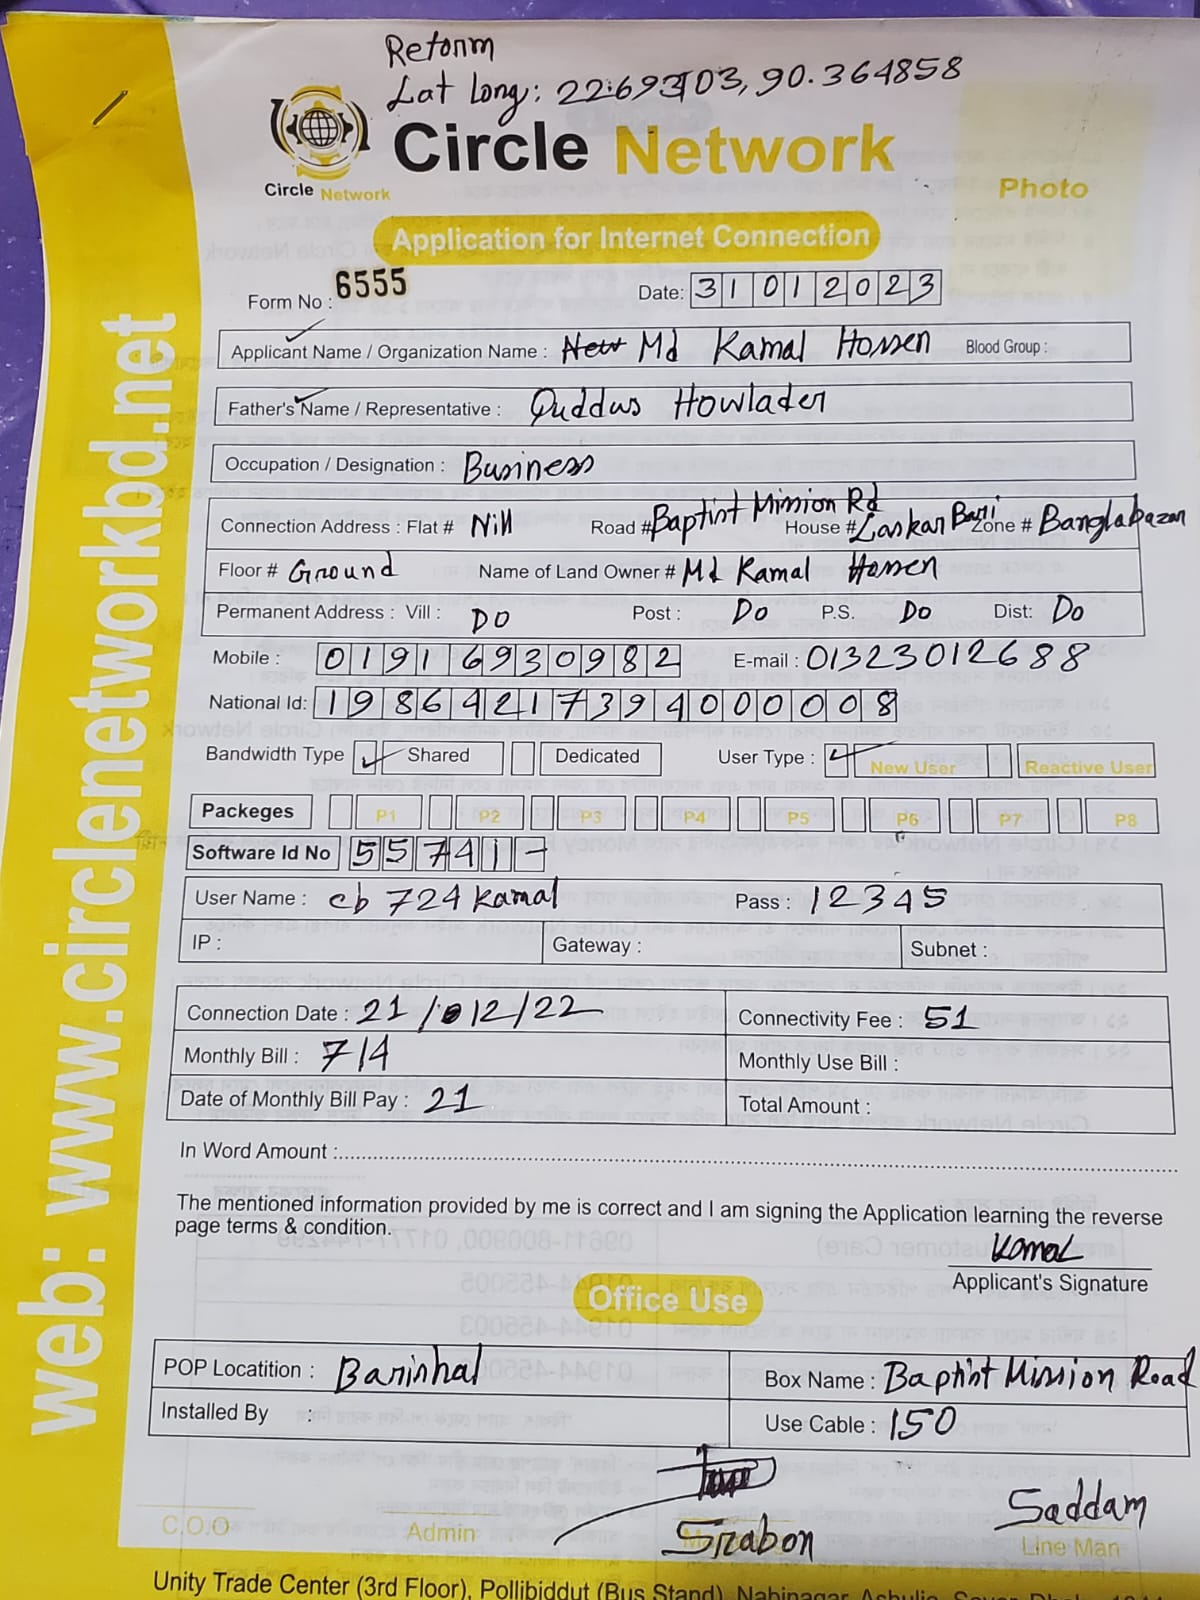 Retorm
Lat long: 22.693703, 90.364858
Circle Network
Circle Network
Photo
Application for Internet Connection
Form No : 6555 Date: 31 01 2023
Applicant Name / Organization Name : New Md Kamal Hossen Blood Group :
Father's Name / Representative : Quddus Howlader
Occupation / Designation : Business
Connection Address : Flat # Nill Road # Baptist Mission Rd House # Laskar Bari Zone # Banglabazar
Floor # Ground Name of Land Owner # Md Kamal Hossen
Permanent Address : Vill : DO Post : Do P.S. Do Dist: Do
Mobile : 01916930982 E-mail : 01323012688
National Id: 19864217394000008
Bandwidth Type Shared Dedicated User Type : New User Reactive User
Packeges P1 P2 P3 P4 P5 P6 P7 P8
Software Id No 55741-
User Name : cb 724 kamal Pass : 12345
IP : Gateway : Subnet :
Connection Date : 21/12/22 Connectivity Fee : 51
Monthly Bill : 714 Monthly Use Bill :
Date of Monthly Bill Pay : 21 Total Amount :
In Word Amount :
The mentioned information provided by me is correct and I am signing the Application learning the reverse
page terms & condition.
Kamal
Applicant's Signature
Office Use
POP Locatition : Barishal Box Name : Baptist Mission Road
Installed By : Use Cable : 150
Srabon Saddam
C.O.O Admin Line Man
Unity Trade Center (3rd Floor), Pollibiddut (Bus Stand), Nabinagar, Ashulia, Savar, Dhaka
web: www.circlenetworkbd.net